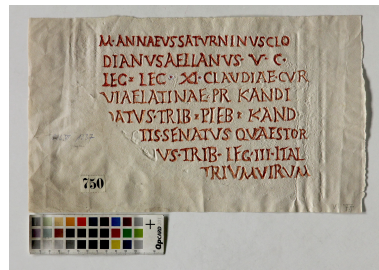 M·ANNAEUS SATURNINUS CLO
DIANUS AELIANUS · V · C ·
LEG · LEG · XI · CLAUDIAE · CUR
VIAE LATINAE · PR KANDI
DATUS · TRIB · PLEB · KAND
TIS · SENATUS QUAESTOR
US · TRIB · LEG · III · ITAL
TRIUMVIRUM
750